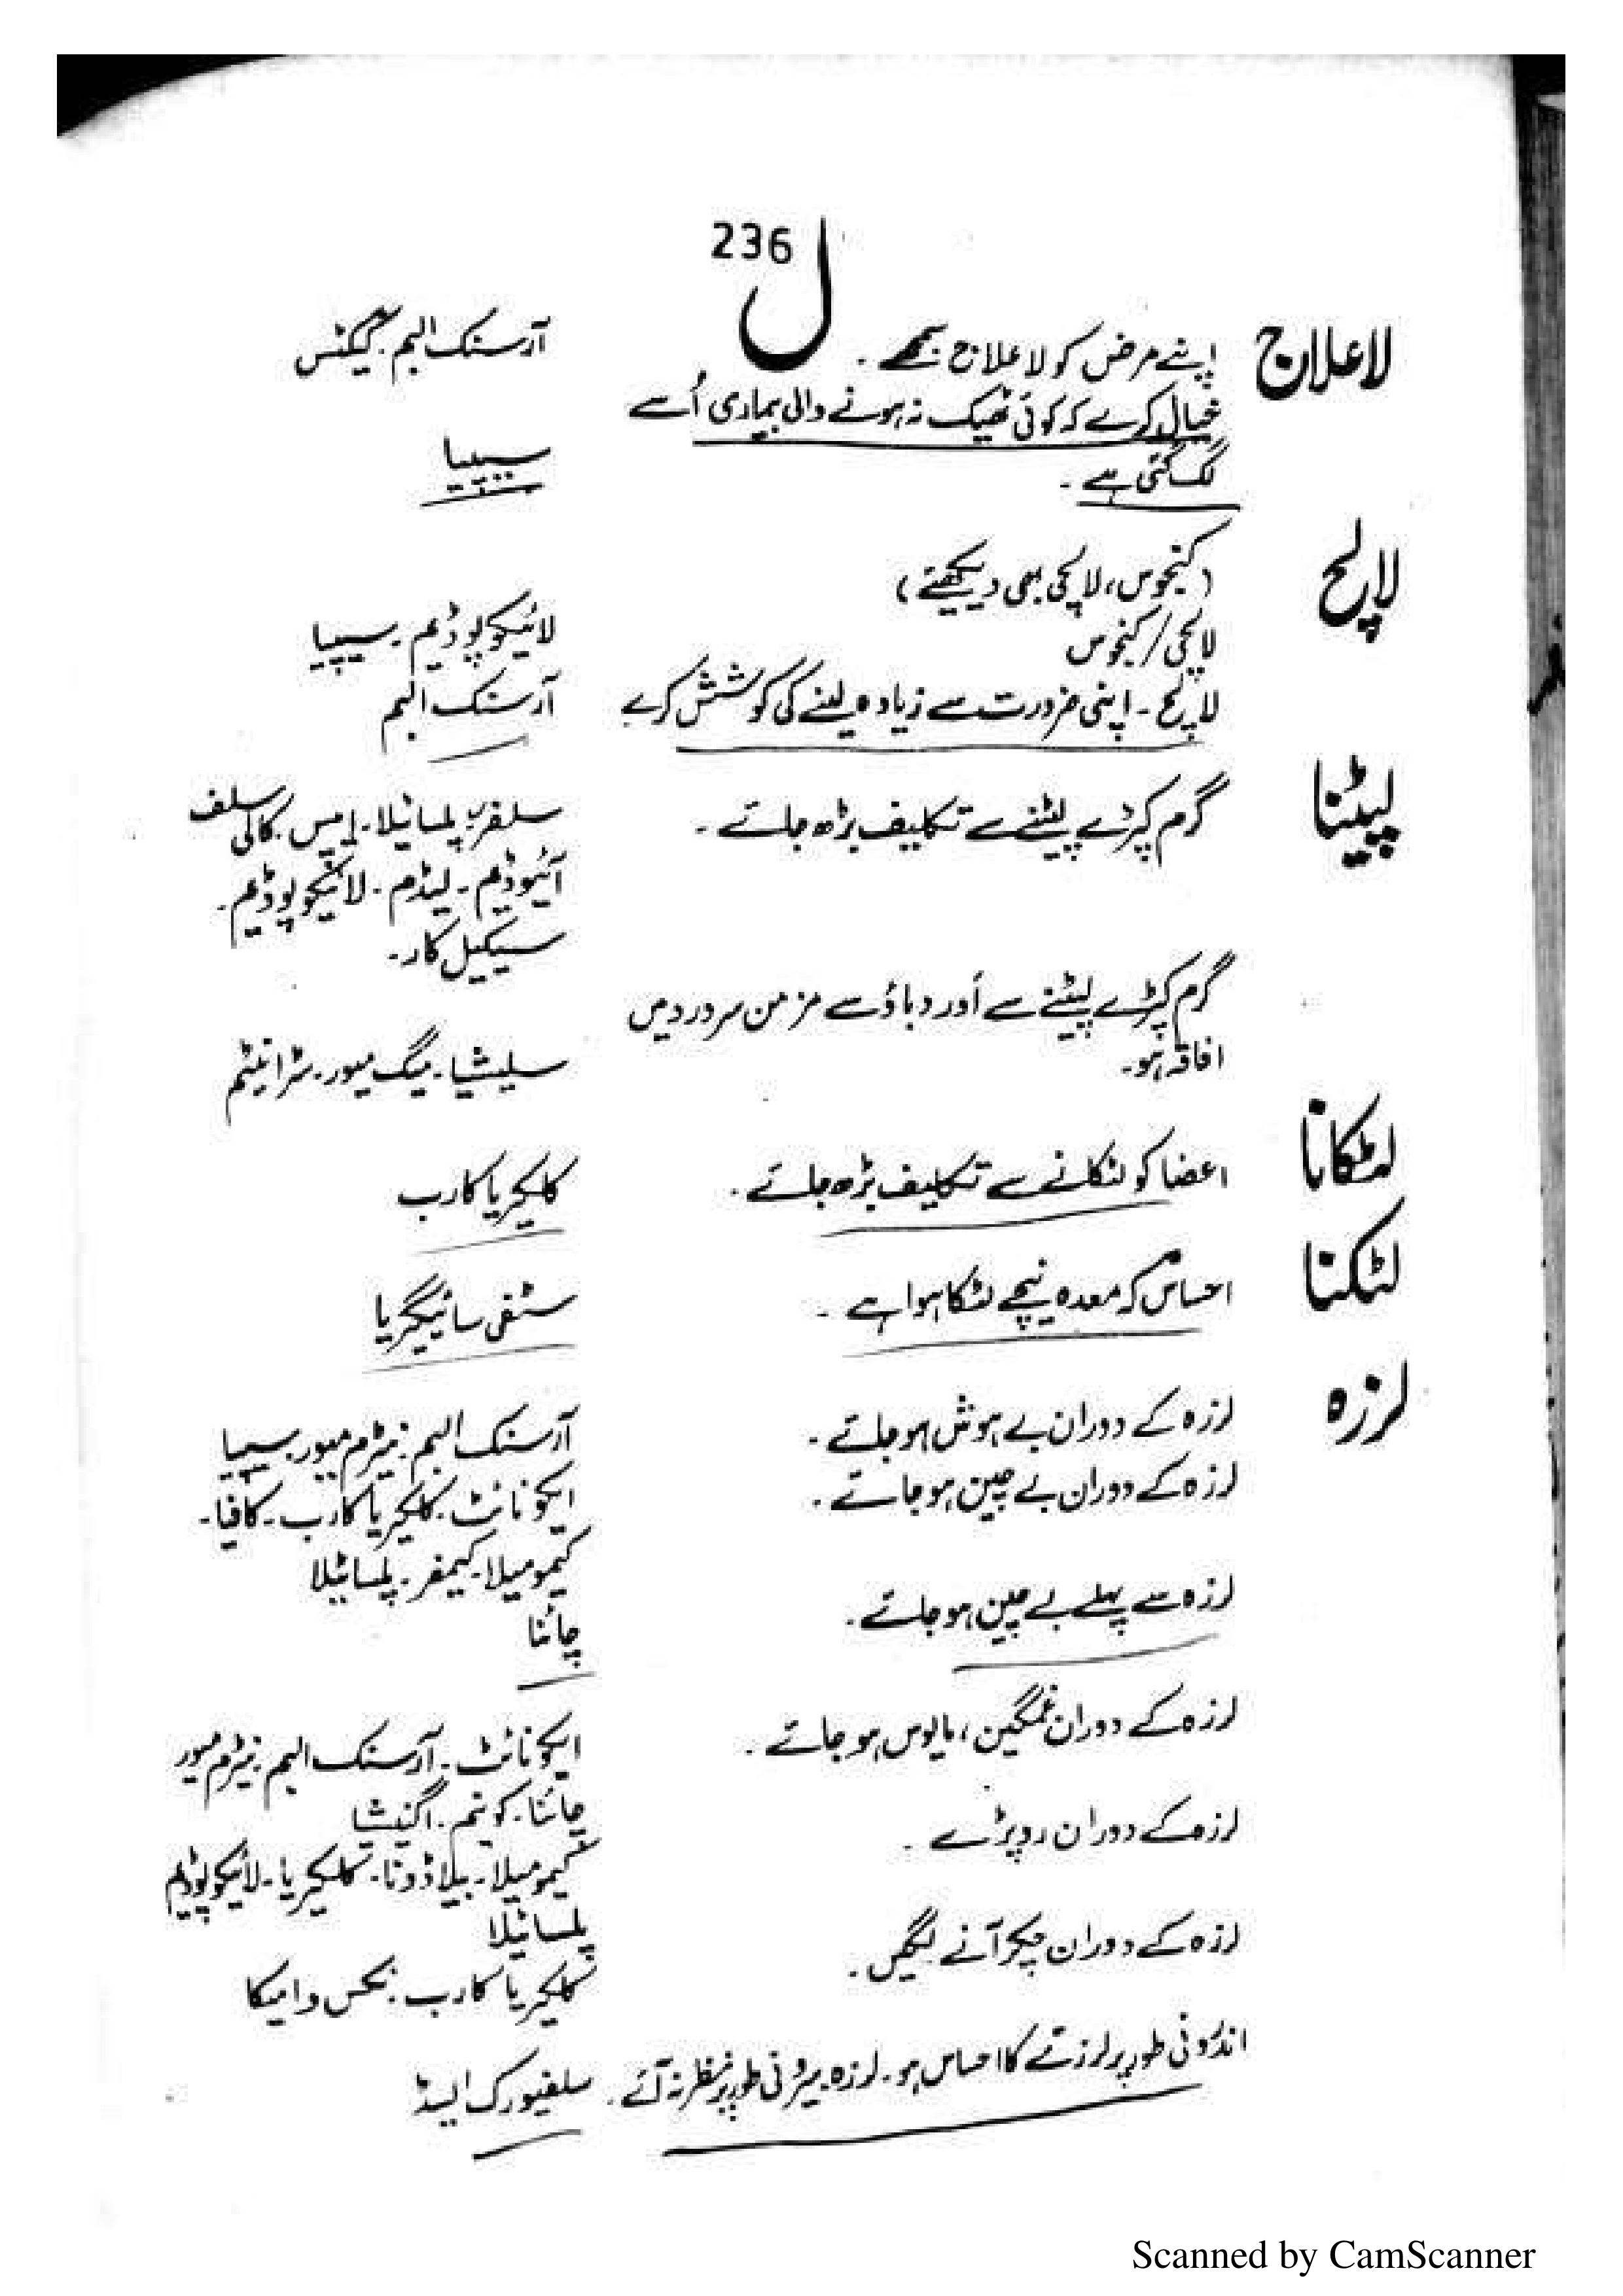 236
ل
لاعلاج اپنے مرض کو لاعلاج سمجھے۔ آرسنک البم۔ کیکٹس
خیال کرے کہ کوئی ٹھیک نہ ہونے والی بیماری اُسے
لگ گئی ہے۔ سیپیا
لالچ (کنجوس، لالچی بھی دیکھئے)
لالچی/کنجوس لائیکوپوڈیم۔ سیپیا
لالچ۔ اپنی ضرورت سے زیادہ لینے کی کوشش کرے آرسنک البم
لپیٹنا گرم کپڑے لپیٹنے سے تکلیف بڑھ جائے۔ سلفر۔ پلساٹیلا۔ ایپس۔ کالی سلف
آئیوڈیم۔ لیڈم۔ لائیکوپوڈیم۔
سیکیل کار۔
گرم کپڑے لپیٹنے سے اور دباؤ سے مزمن سردرد میں
افاقہ ہو۔ سلیشیا۔ میگ میور۔ سٹرانیٹم
لٹکانا اعضا کو لٹکانے سے تکلیف بڑھ جائے۔ کلکیریا کارب
لٹکنا احساس کہ معدہ نیچے لٹکا ہوا ہے۔ سٹفی سائیگریا
لرزہ لرزہ کے دوران بے ہوش ہو جائے۔ آرسنک البم۔ نیٹرم میور۔ سیپیا
لرزہ کے دوران بے چین ہو جائے۔ ایکونائٹ۔ کلکیریا کارب۔ کافیا۔
کیمومیلا۔ کیمفر۔ پلساٹیلا
لرزہ سے پہلے بے چین ہو جائے۔ چائنا
لرزہ کے دوران غمگین، مایوس ہو جائے۔ ایکونائٹ۔ آرسنک البم۔ نیٹرم میور
چائنا۔ کونیم۔ اگنیشیا
لرزہ کے دوران رو پڑے۔ کیمومیلا۔ بیلاڈونا۔ کلکیریا۔ لائیکوپوڈیم
پلساٹیلا
لرزہ کے دوران چکر آنے لگیں۔ کلکیریا کارب۔ نکس وامیکا
اندرونی طور پر لرزنے کا احساس ہو۔ لرزہ بیرونی طور پر نظر نہ آئے۔ سلفیورک ایسڈ
Scanned by CamScanner